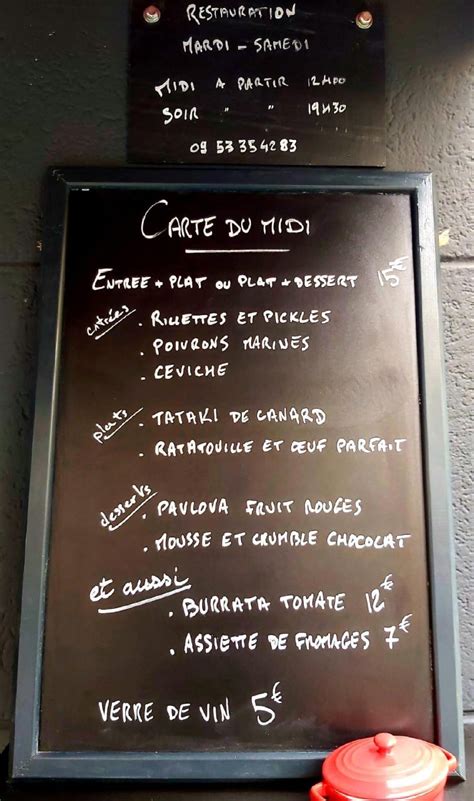 RESTAURATION
MARDI - SAMEDI
MIDI A PARTIR 12H00
SOIR " " 19H30
09 53 35 42 83
CARTE DU MIDI
ENTREE + PLAT OU PLAT + DESSERT 15€
entrées
. RILLETTES ET PICKLES
. POIVRONS MARINES
. CEVICHE
plats
. TATAKI DE CANARD
. RATATOUILLE ET ŒUF PARFAIT
desserts
. PAVLOVA FRUIT ROUGES
. MOUSSE ET CRUMBLE CHOCOLAT
et aussi
. BURRATA TOMATE 12€
. ASSIETTE DE FROMAGES 7€
VERRE DE VIN 5€